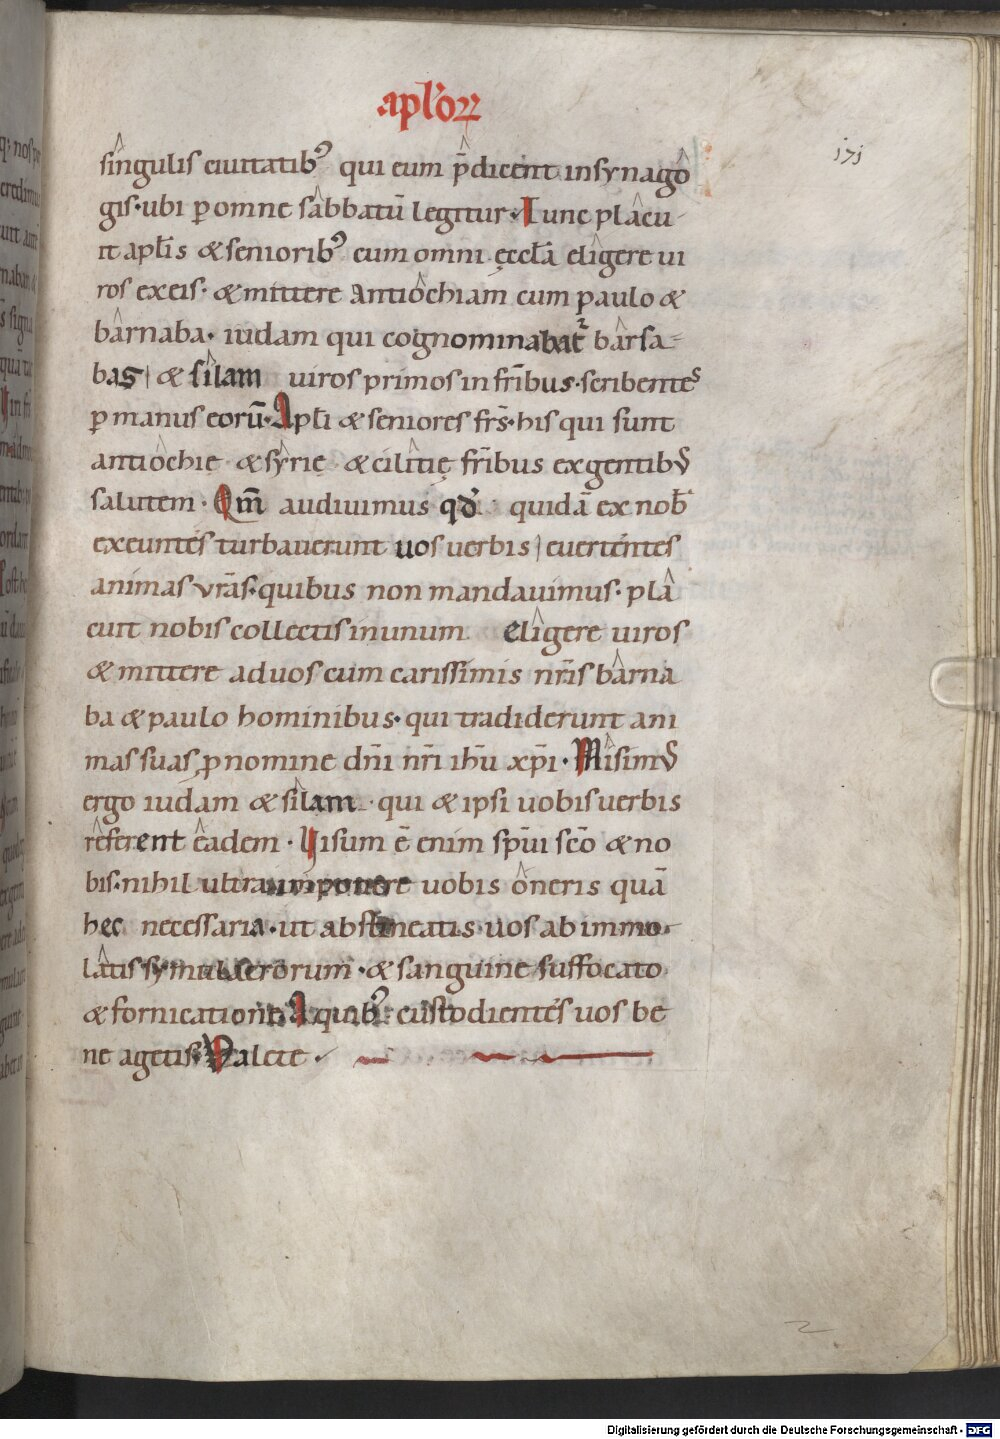 apl'oꝝ
171
singulis ciuitatib᾿ qui eum p̄dicent in synago
gis· ubi ꝑ omne sabbatū legitur· Tunc placu-
it apl̄is & seniorib᾿ cum omni ęccl̄a eligere ui
ros ex eis· & mittere antiochiam cum paulo &
barnaba· iudam qui cognominabat᷑ barsa-
bas & silam uiros primos in fr̄ibus· scribentes
ꝑ manus eorū· Apl̄i & seniores frs̄· his qui sunt
antiochię & syrię & cilitię fr̄ibus ex gentibꝰ
salutem· Qm̄ audiuimus qd̕ quidā ex nob̄
exeuntes turbauerunt uos uerbis euertentes
animas vrās· quibus non mandauimus· pla
cuit nobis collectis in unum eligere uiros
& mittere ad uos cum carissimis nr̄is barna
ba & paulo hominibus· qui tradiderunt ani
mas suas ꝓ nomine dn̄i nr̄i ih̄u xp̄i· Misimꝰ
ergo iudam & silam· qui & ipsi uobis uerbis
referent eadem· Uisum ē enim sp̄ui scō & no
bis· nihil ultra imponere uobis oneris quā
hec necessaria· ut abstineatis uos ab immo-
latis symulacrorum· & sanguine suffocato
& fornicatione· A quib᾿ custodientes uos be
ne agetis· Valete·
2
Digitalisierung gefördert durch die Deutsche Forschungsgemeinschaft - DFG